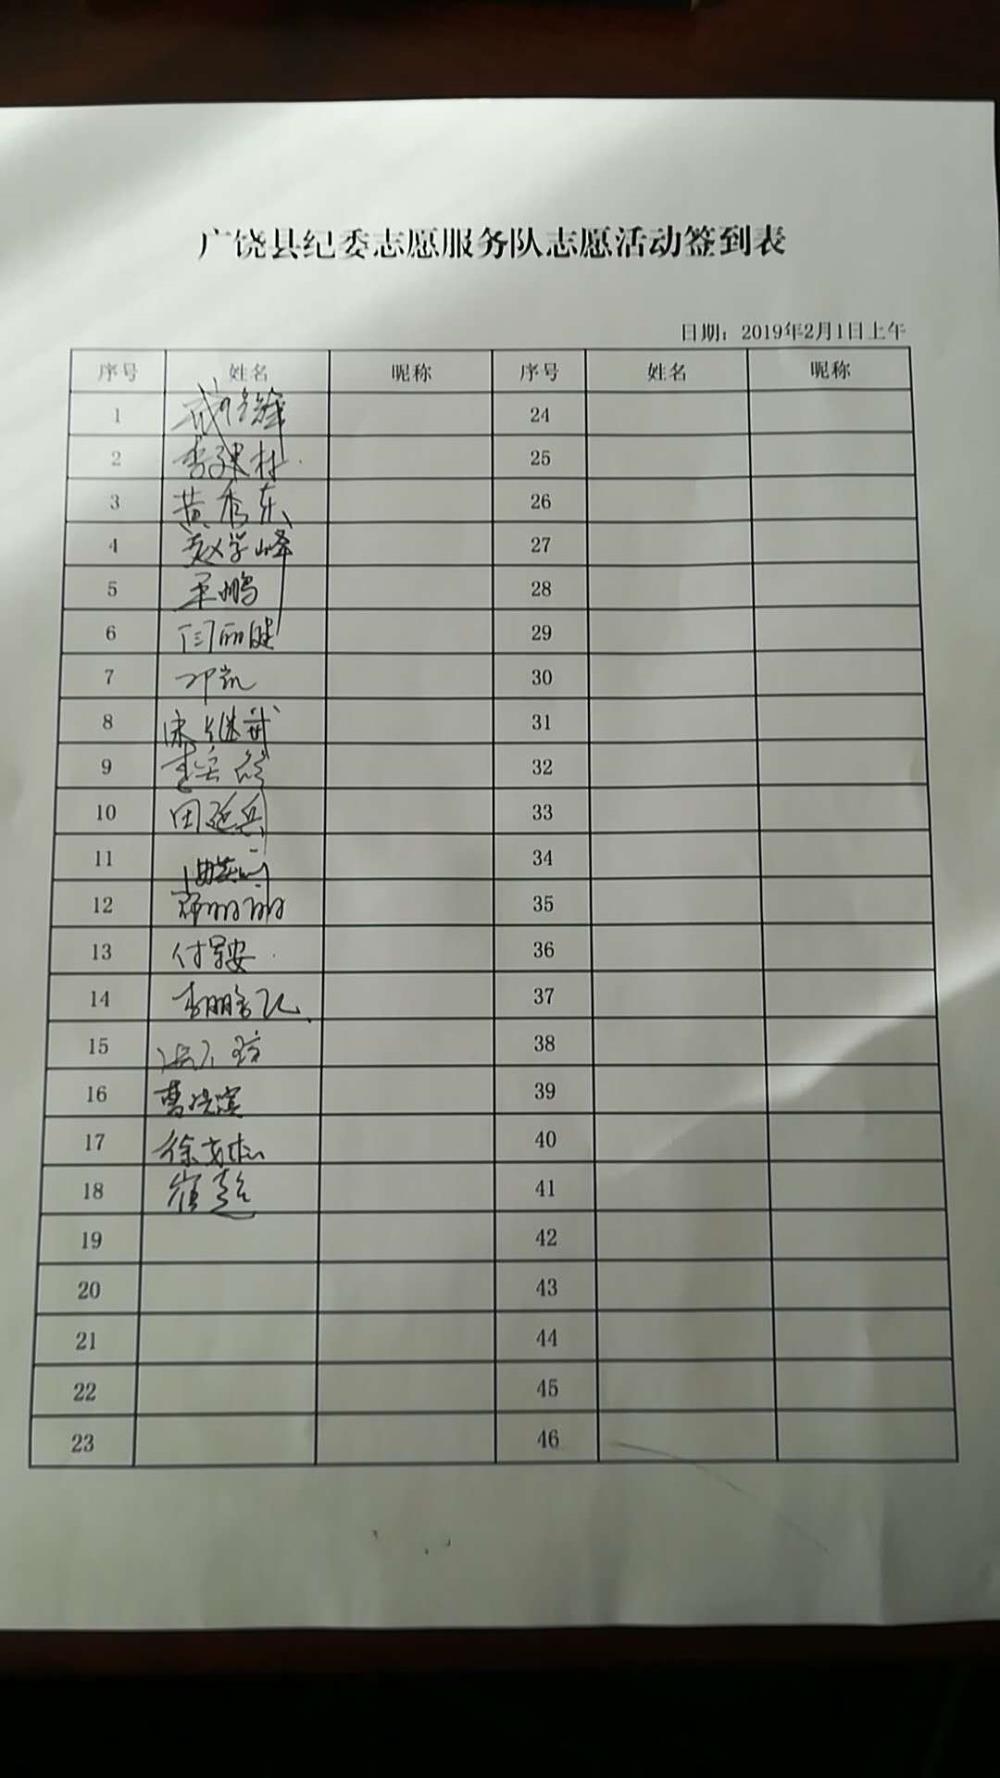 广饶县纪委志愿服务队志愿活动签到表
日期：2019年2月1日上午
序号 姓名 昵称 序号 姓名 昵称
1 24
2 李建村 25
3 黄秀东 26
4 赵学峰 27
5 王鹏 28
6 闫丽健 29
7 邓凯 30
8 宋继武 31
9 李 32
10 田延兵 33
11 34
12 郭丽丽 35
13 付 安 36
14 李鹏 37
15 38
16 曹洪滨 39
17 徐 40
18 崔超 41
19 42
20 43
21 44
22 45
23 46